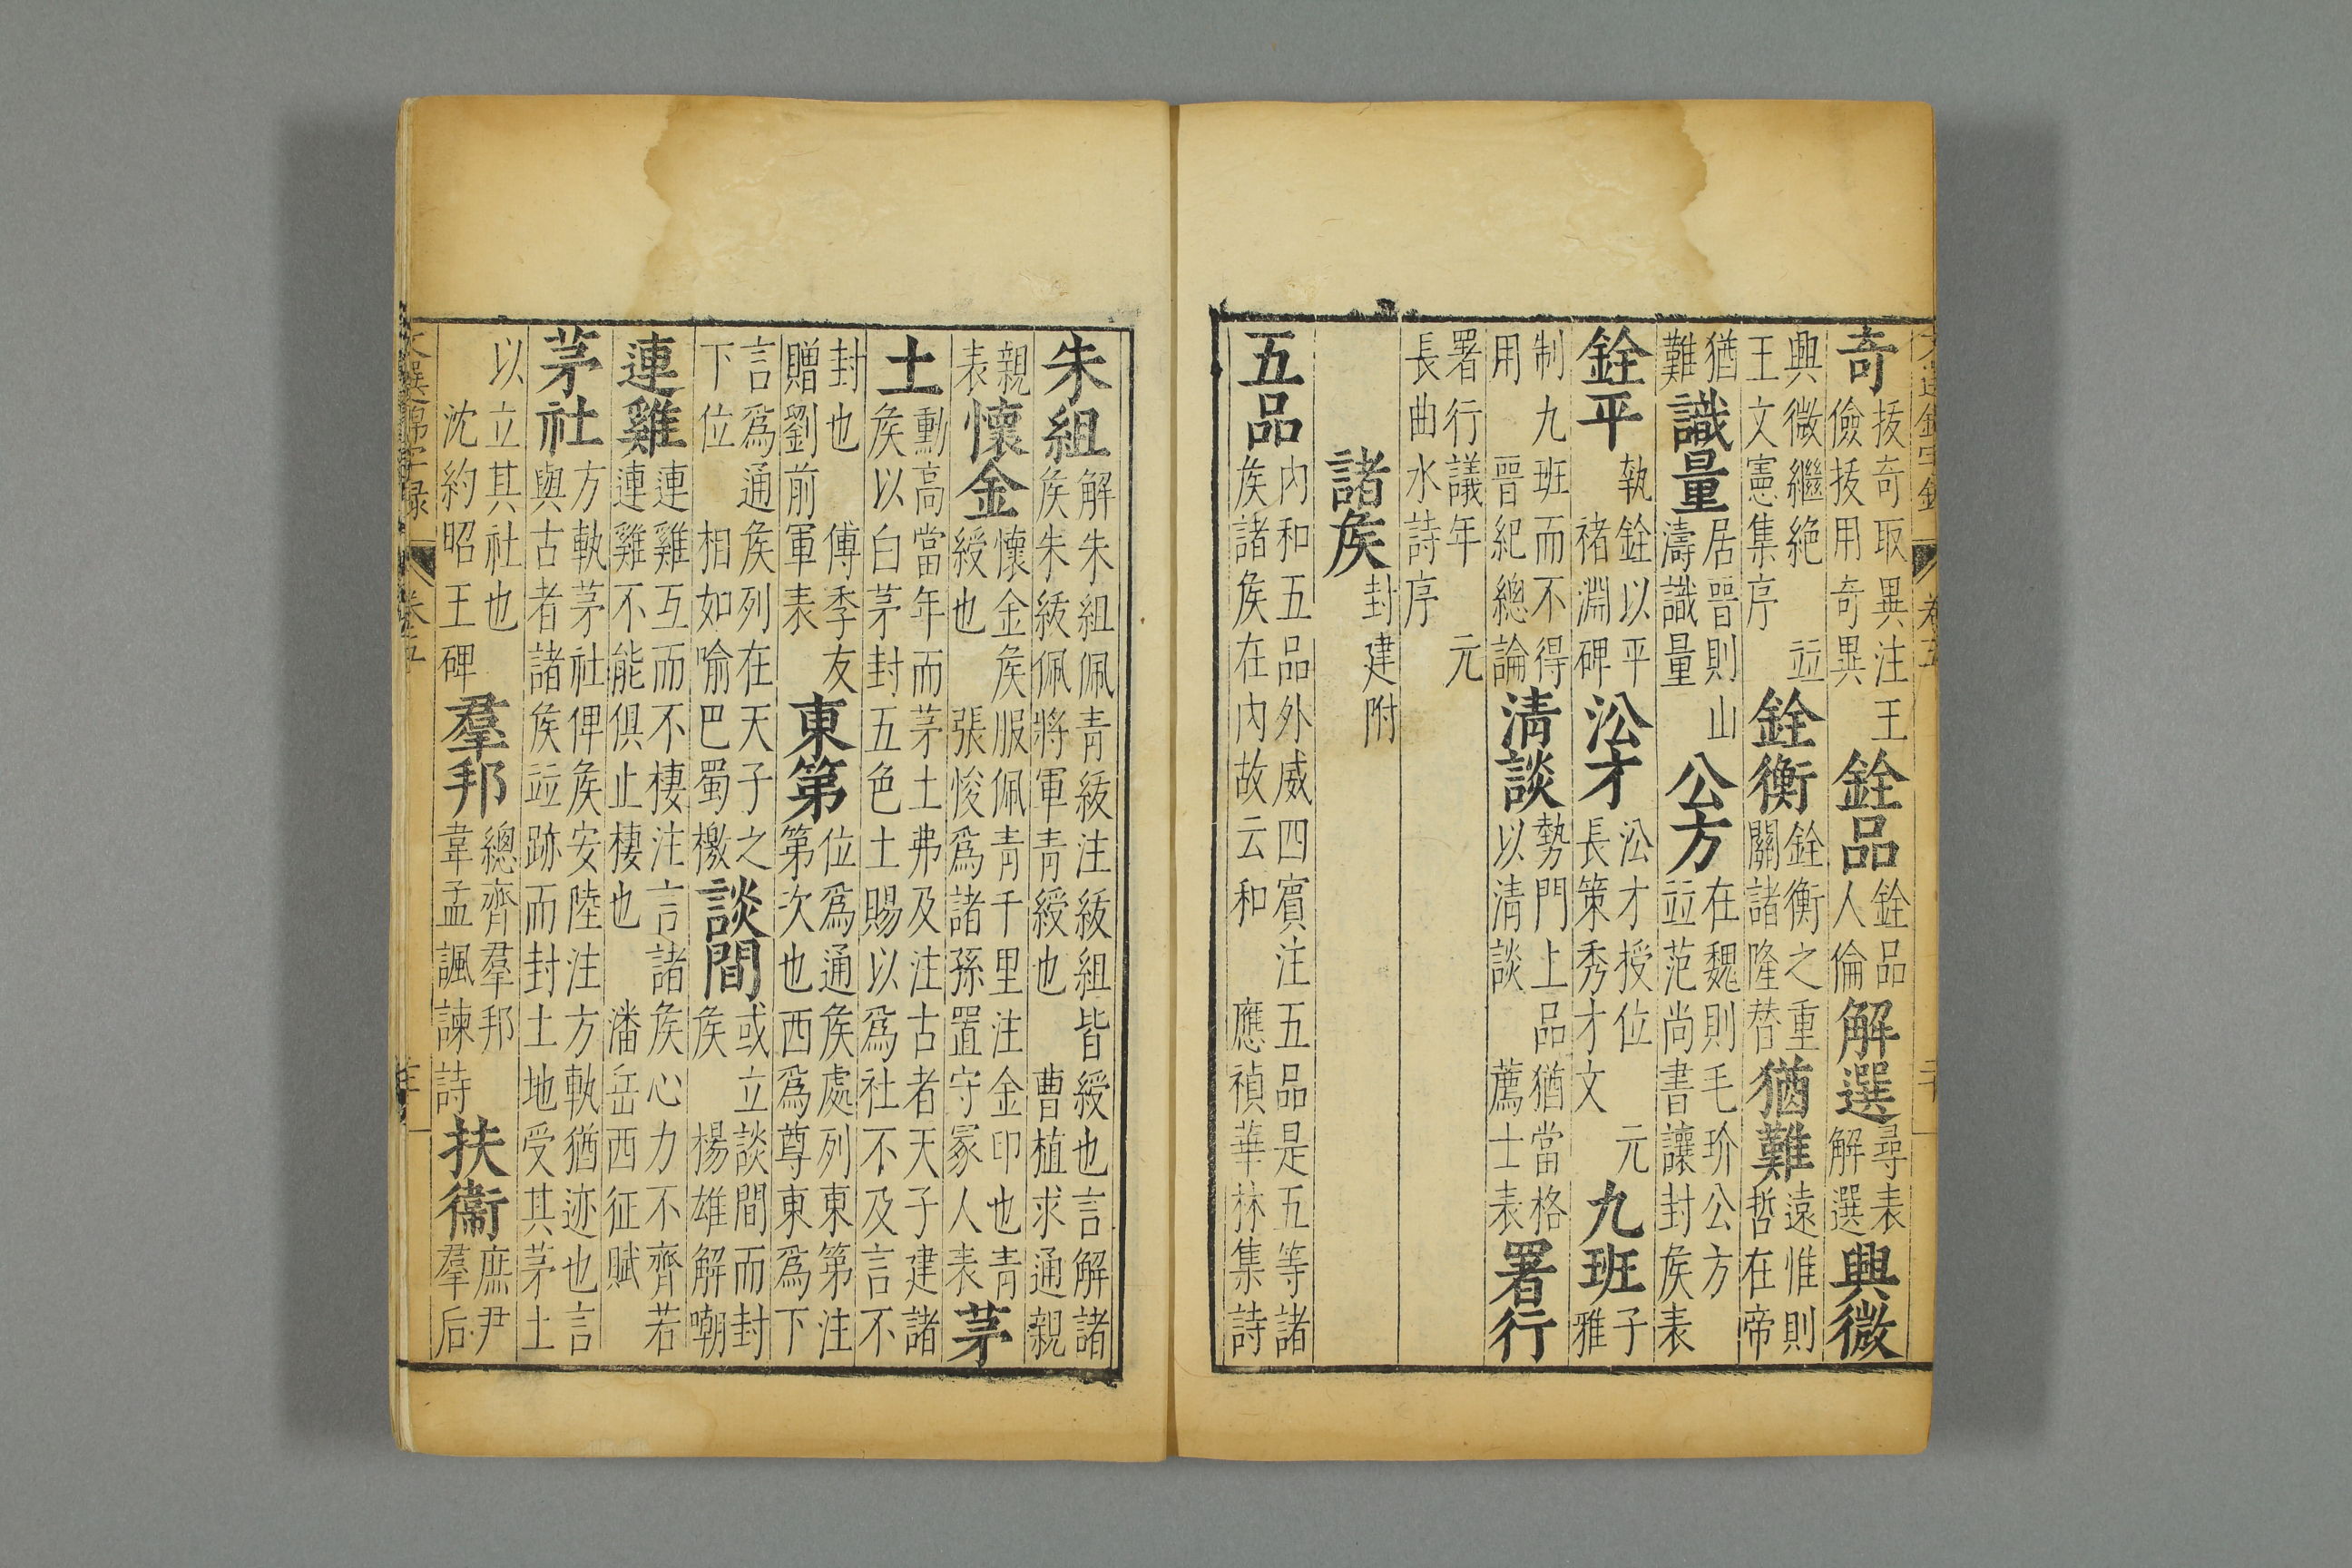 奇拔奇取異注王儉拔用奇異銓品銓品人倫解選尋表解選興微
興微繼絶並王文憲集序銓衡銓衡之重關諸隆替猶難遠惟則哲在帝
猶難識量居晉則山濤識量公方在魏則毛玠公方並范尚書讓封矦表
銓平執銓以平褚淵碑㳂才㳂才授位元長策秀才文九班子雅
制九班而不得用晉紀總論清談勢門上品猶當格以清談薦士表署行
署行議年元長曲水詩序
諸矦封建附
五品內和五品外威四賓注五品是五等諸矦諸矦在內故云和應禎華林集詩
朱組解朱組佩青紱注紱組皆綬也言解諸矦朱紱佩將軍青綬也曹植求通親
親表懷金懷金矦服佩青千里注金印也青綬也張悛爲諸孫置守冢人表茅
土勳高當年而茅土弗及注古者天子建諸矦以白茅封五色土賜以爲社不及言不
封也傅季友贈劉前軍表東第位爲通矦處列東第注第次也西爲尊東爲下
言爲通矦列在天子之下位相如喻巴蜀檄談間或立談間而封矦楊雄解嘲
連雞連雞互而不棲注言諸矦心力不齊若連雞不能俱止棲也潘岳西征賦
茅社方軌茅社俾矦安陸注方軌猶迹也言與古者諸矦並跡而封土地受其茅土
以立其社也沈約昭王碑羣邦總齊羣邦韋孟諷諫詩扶衞庶尹羣后
文選錦字録 卷五